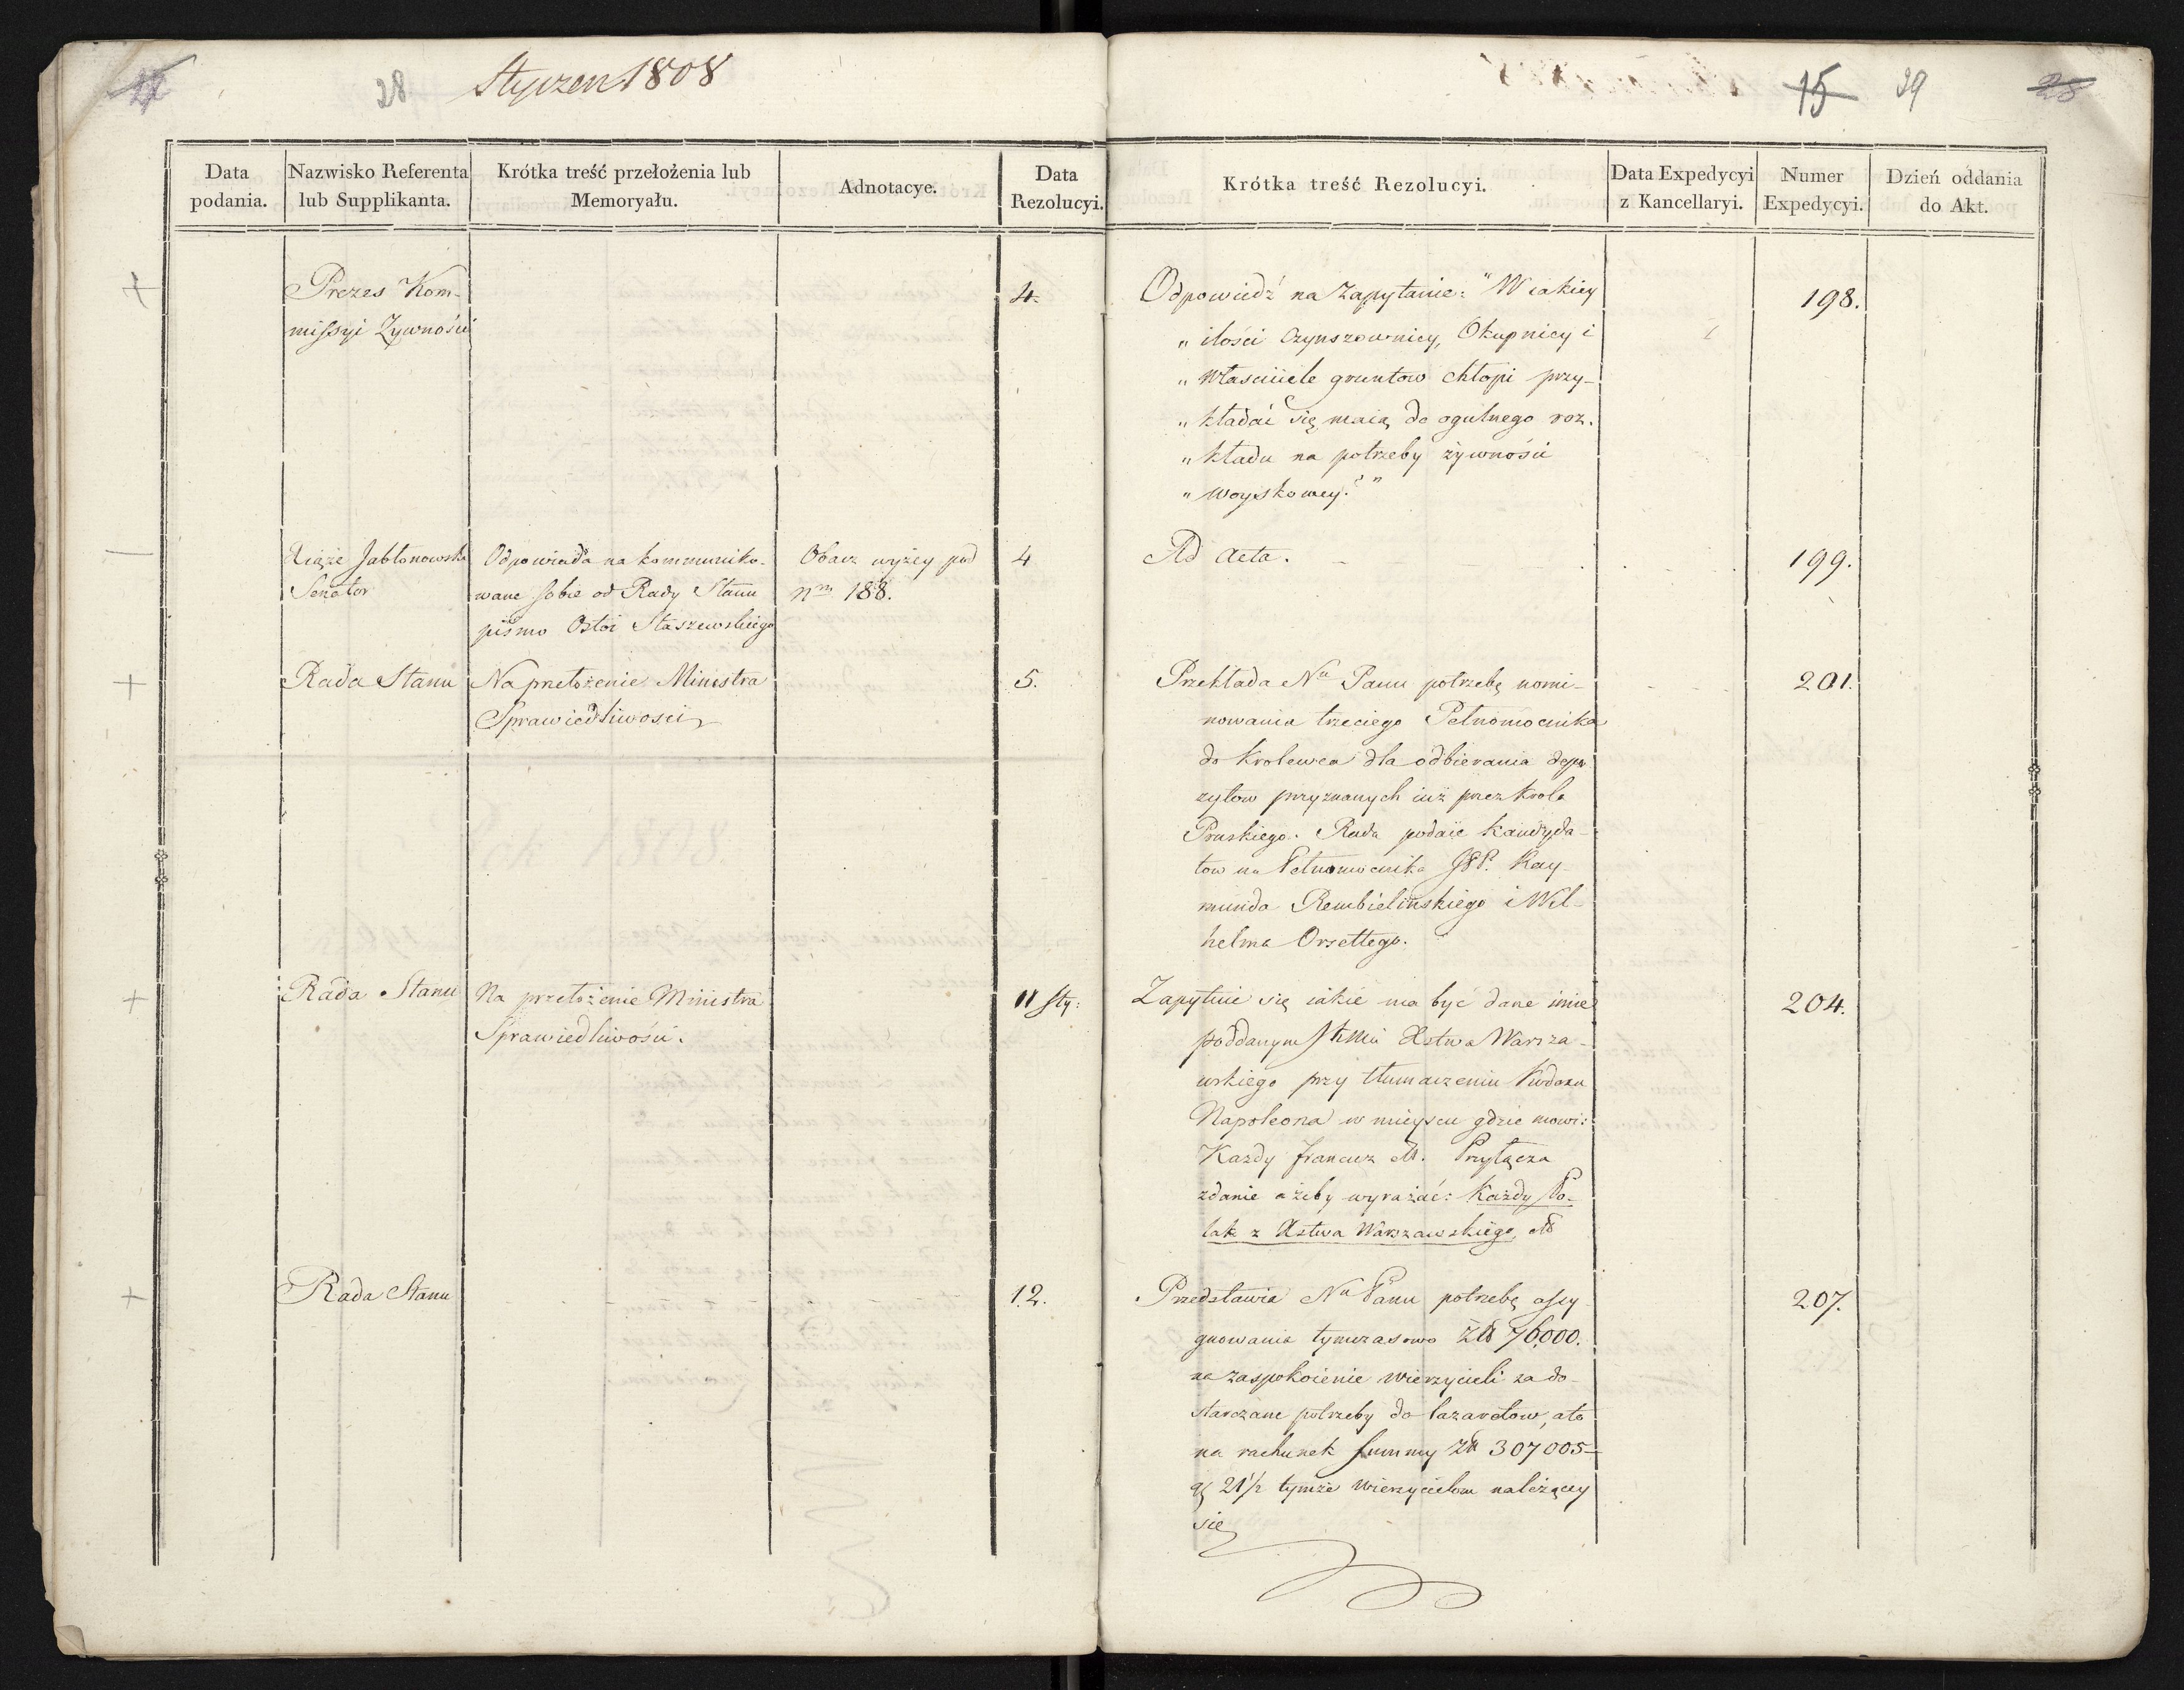 28
Styczen 1808
15 29 28
Data podania.
Nazwisko Referenta lub Supplikanta.
Krótka treść przełożenia lub Memoryału.
Adnotacye.
Data Rezolucyi.
Krótka treść Rezolucyi.
Data Expedycyi z Kancellaryi.
Numer Expedycyi.
Dzień oddania do Akt.
Prezes Kom-
missyi Zywności
4.
Odpowiedź na Zapytanie: "W iakiey
" ilości Czynszownicy, Okupnicy i
" Własciciele gruntow chłopi przy-
" kładać się maią do ogulnego roz.
" kładu na potrzeby żywności
" woyskowey?"
198.
Xiąże Jabłonowski
Senator
Odpowiada na kommuniko-
wane sobie od Rady Stanu
pismo Ostoi Staszewskiego
Obacz wyżey pod
Nm 188.
4
Ad Acta.
199.
Rada Stanu
Na przełożenie Ministra
Sprawiedliwosci
5.
Przekłada Nu Panu potrzebę nomi-
nowania trzeciego Pełnomocnika
do Krolewca dla odbierania depo
zytow przyznanych iuż przez Krola
Pruskiego. Rada podaie kandyda-
tow na Pełnomocnika JPP. Ray-
munda Rembielińskiego i Wil-
helma Orsettego.
201.
Rada Stanu
Na przełożenie Ministra
Sprawiedliwości.
11 Sty:
Zapytuie się iakie ma być dane imie
poddanym Xstwa Warsza-
wskiego przy tłumaczeniu Kodexu
Napoleona w mieyscu gdzie mowi:
Każdy francuz Przyłącza
zdanie ażeby wyrażać: Każdy Po-
lak z Xstwa Warszawskiego,
204.
Rada Stanu
12.
Przedstawia Nu Panu potrzebę assy
gnowania tymczasowo Zł 76,000.
na zaspokoienie wierzycieli za do-
starczane potrzeby do lazaretow, a to
na rachunek summy Zł 307005-
g 21 1/2 tymże wierzycielom należącey
się
207.